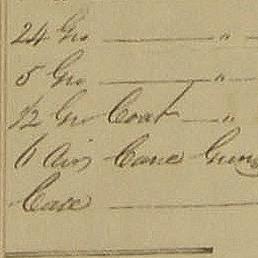 24 Gro "
5 Gro "
1/2 Gro Coat "
6 Air Cane Guns
Case